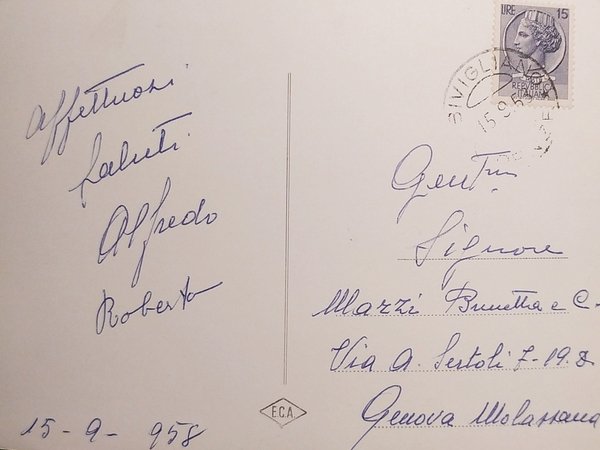 Affettuosi
Saluti
Alfredo
Roberto
15-9-958
E.C.A.
LIRE 15
REPVBBLICA
ITALIANA
15.9.5
Gent.
Signore
Mazzi Brunetta e C.
Via A. Sertoli 7-19.8
Genova Molassana